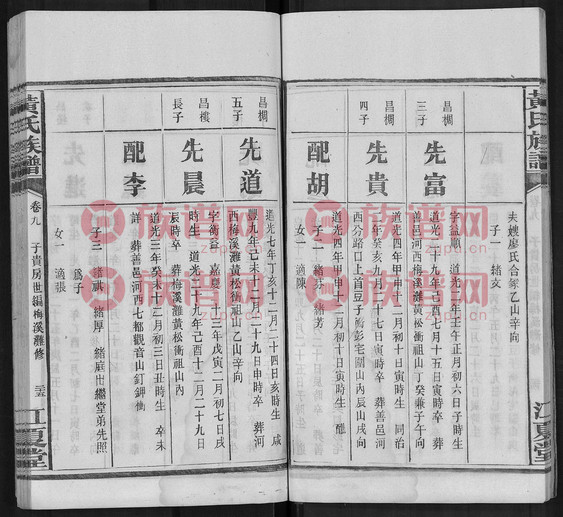 黃氏族譜
江夏堂
夫嫂廖氏合塚乙山辛向
子一 緒文
昌棡
三子
先富
字益順 道光二年壬午正月初六日子時生
道光二十九年己酉七月十五日寅時卒 葬
善邑河西梅溪灘黃松衝祖山丁癸兼子午向
昌棡
四子
先貴
道光四年甲申十二月初十日寅時生 同治
二年癸亥九月二十日寅時卒 葬善邑河
西分路口上首豆子衝彭宅關山內辰山戌向
配胡
道光四年甲申十二月初十日寅時生
子二 緒芬 緒芳
女一 適陳
昌棡
五子
先道
道光七年丁亥十二月二十四日亥時生 咸
豐九年己未十二月二十九日申時卒 葬河
西梅溪灘黃松衝祖山乙山辛向
昌樓
長子
先晨
字衡益 嘉慶二十三年戊寅二月初七日戌
時生 道光二十九年己酉十二月二十九日
辰時卒 葬梅溪灘黃松衝祖山內
配李
道光三年癸未十二月初三日丑時生 卒未
詳 葬善邑河西七都觀音山釘鉀衝
子三 緒祺 緒厚 緒庭出繼堂弟先照
為子
女一 適張
黃氏族譜
卷九 子貴房世編梅溪灘修
江夏堂
族譜网
zupu.cn